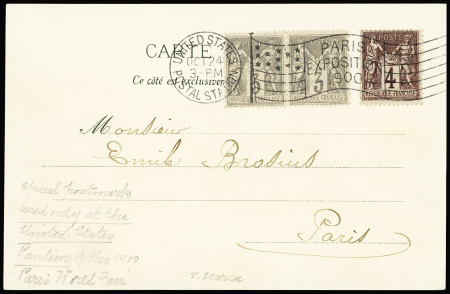 CARTE
UNITED STATES
OCT 24
3 - PM
POSTAL STATION
PARIS
EXPOSITION
1900
POSTE
4
Ce côté est exclusivem
Monsieur
Emile Brosius
Paris
Special postmark
used only at the
United States
Pavilion of the 1900
Paris World Fair
v. scarce